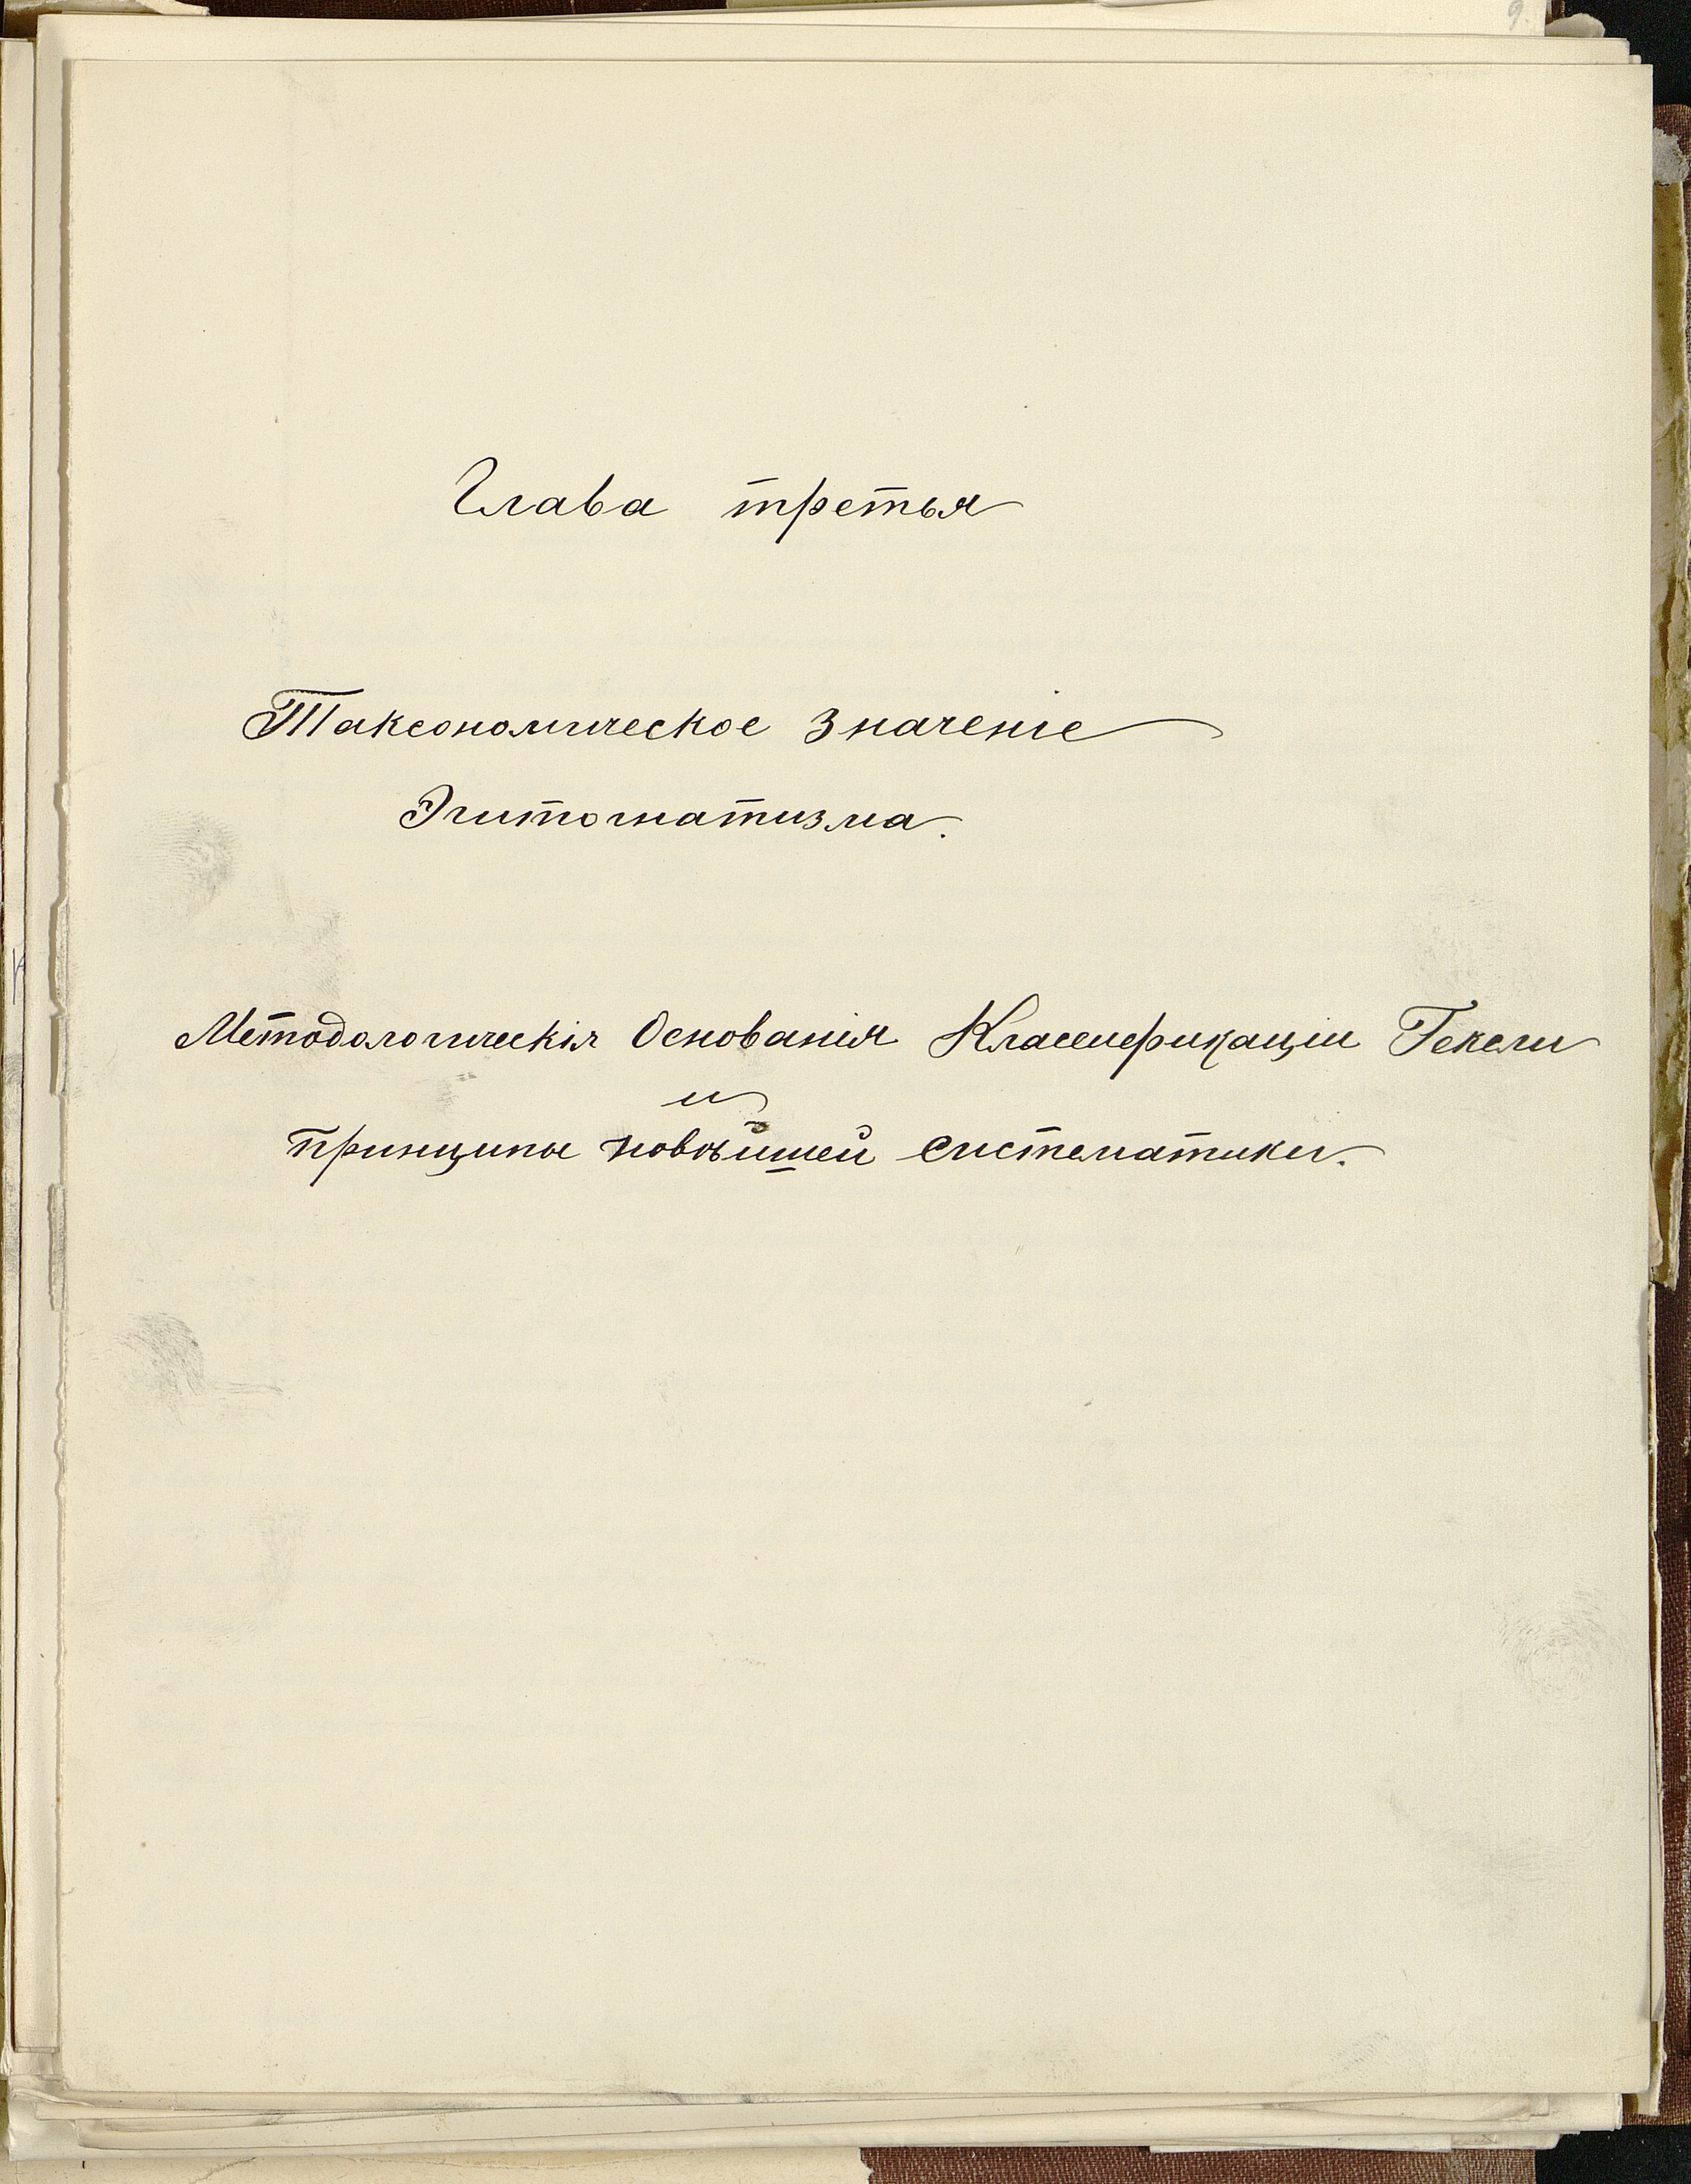 9.
Глава третья
Таксономическое значеніе
Эгитогнатизма.
Методологическія Основанія Классификаціи Гексли
и
принципы новѣйшей систематики.